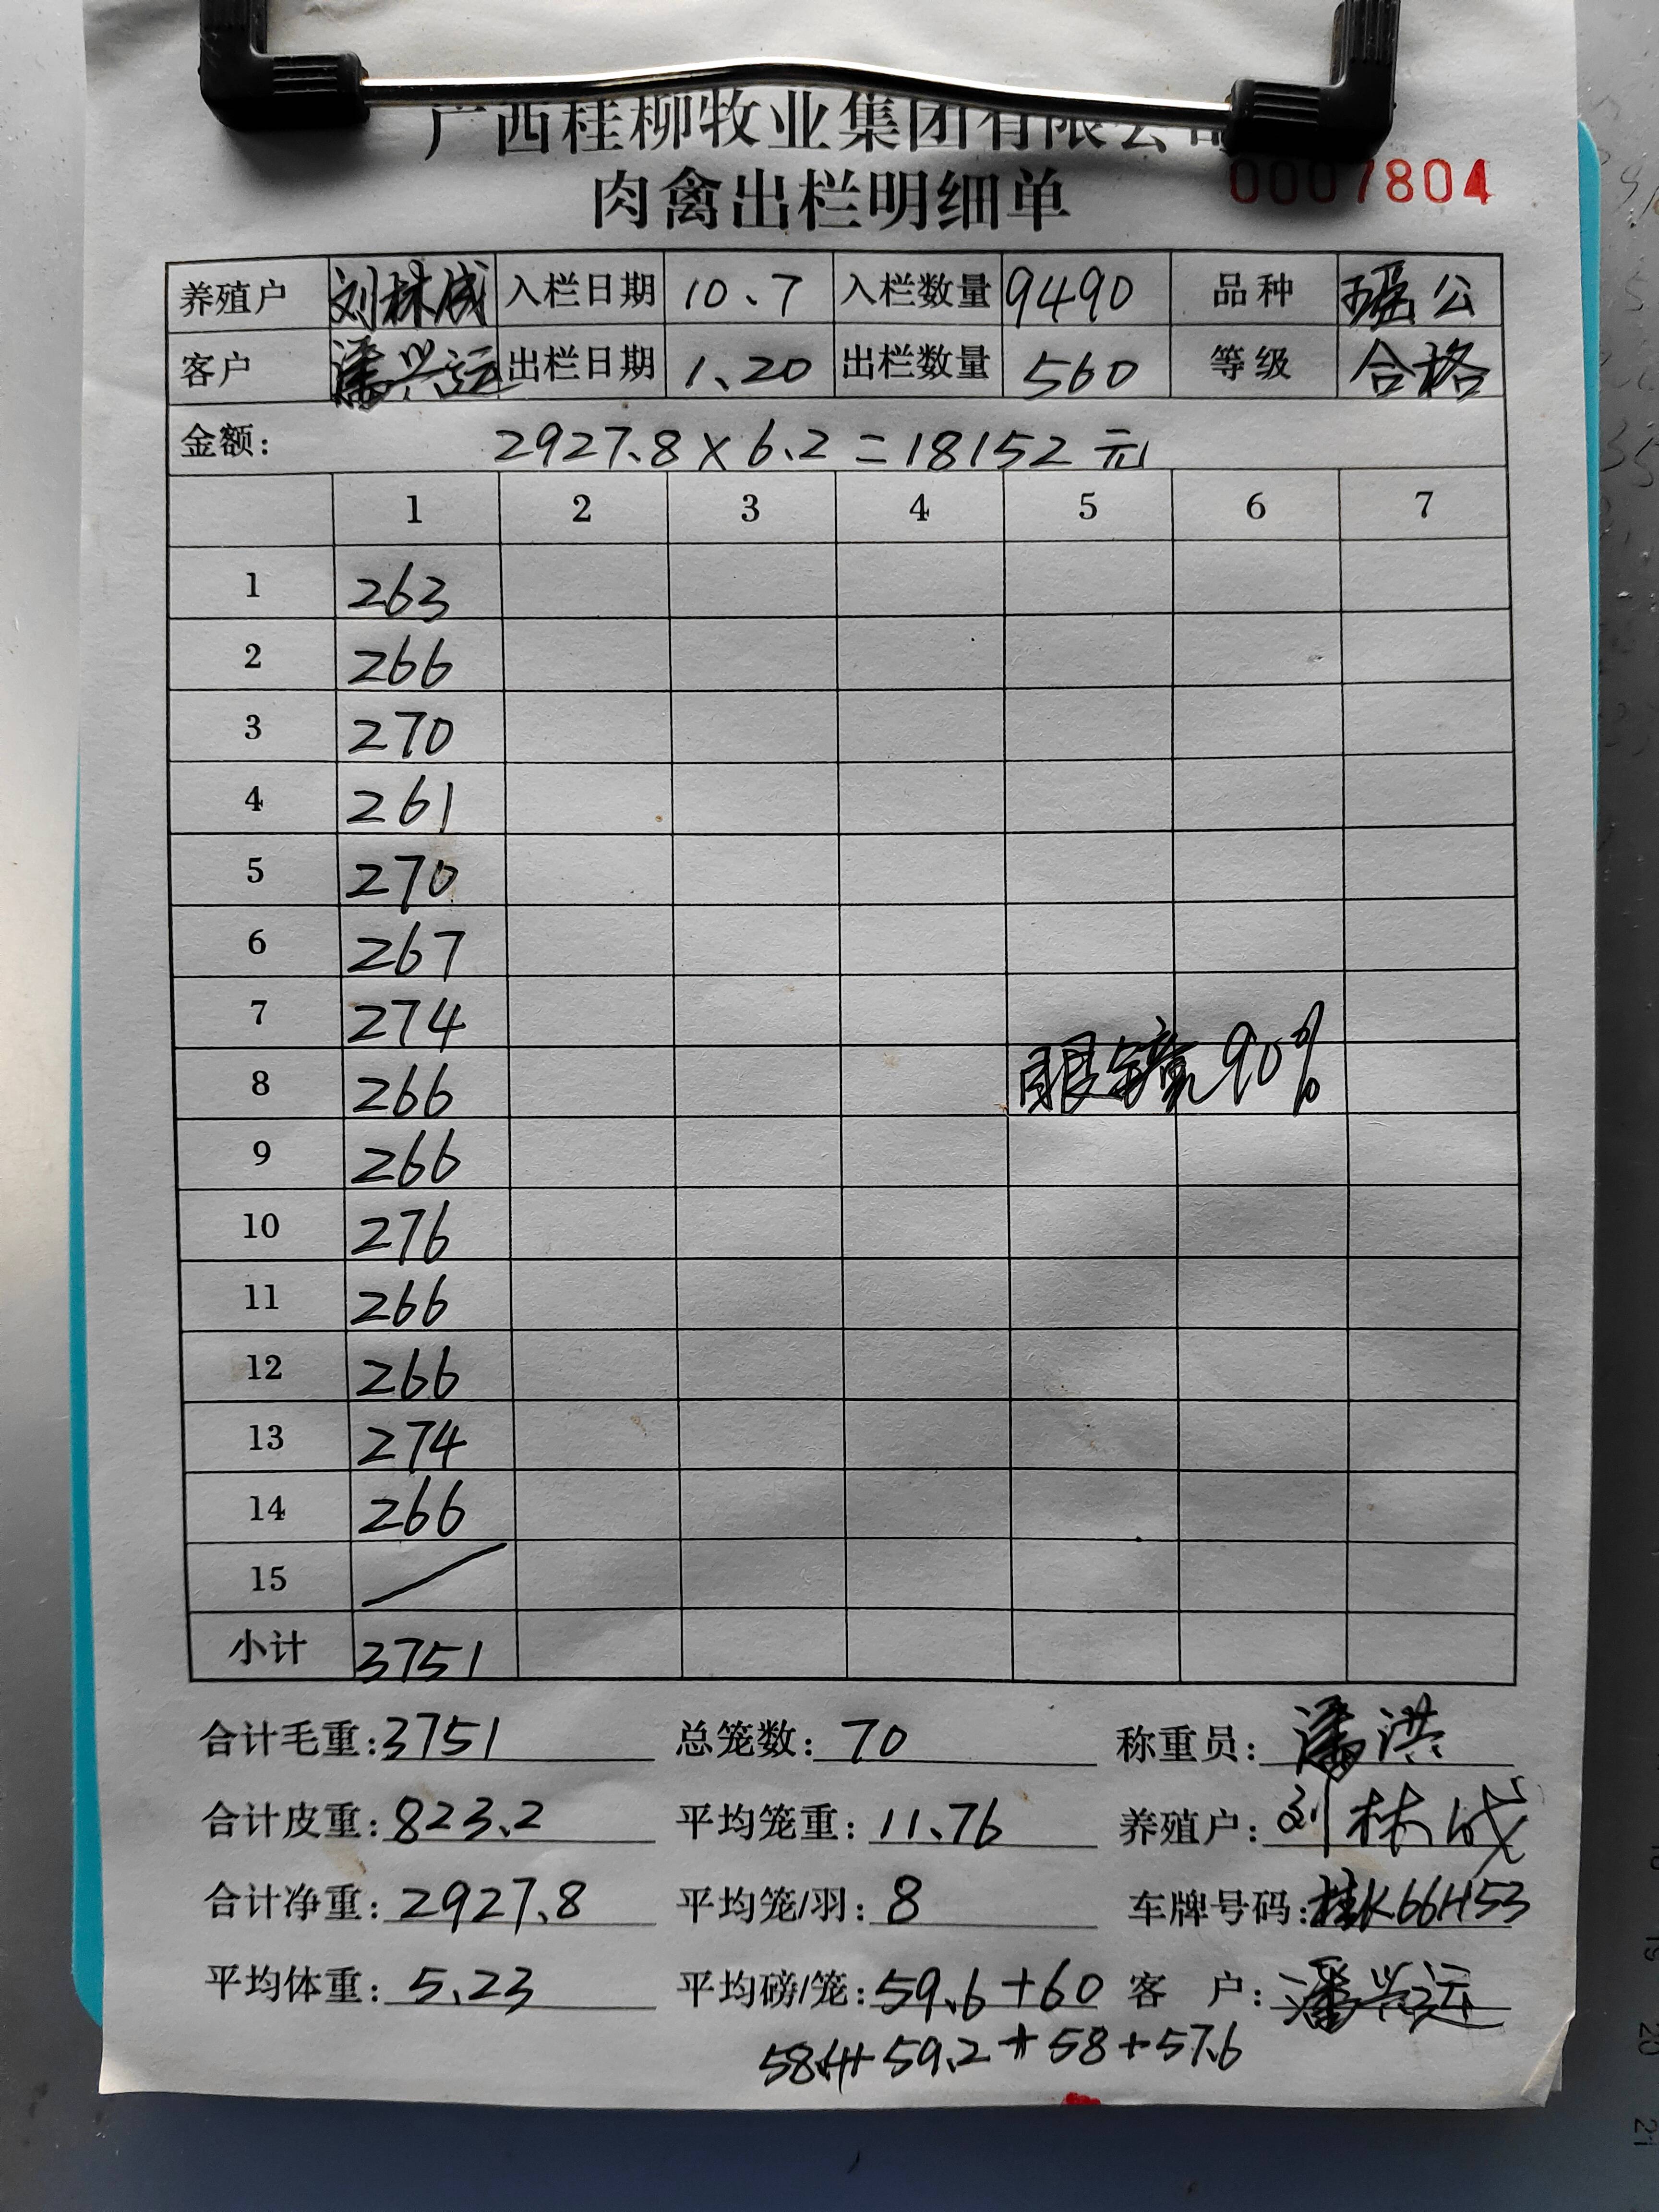 广西桂柳牧业集团有限公司
肉禽出栏明细单 0007804
养殖户 刘林成 入栏日期 10.7 入栏数量 9490 品种 瑶公
客户 潘兴运 出栏日期 1.20 出栏数量 560 等级 合格
金额: 2927.8×6.2=18152元
1 2 3 4 5 6 7
1 263
2 266
3 270
4 261
5 270
6 267
7 274
8 266 眼镜90%
9 266
10 276
11 266
12 266
13 274
14 266
15
小计 3751
合计毛重:3751 总笼数:70 称重员:潘洪
合计皮重:823.2 平均笼重:11.76 养殖户:刘林成
合计净重:2927.8 平均笼/羽:8 车牌号码:桂K66H53
平均体重:5.23 平均磅/笼:59.6+60 客户:潘兴运
58.4+59.2+58+57.6